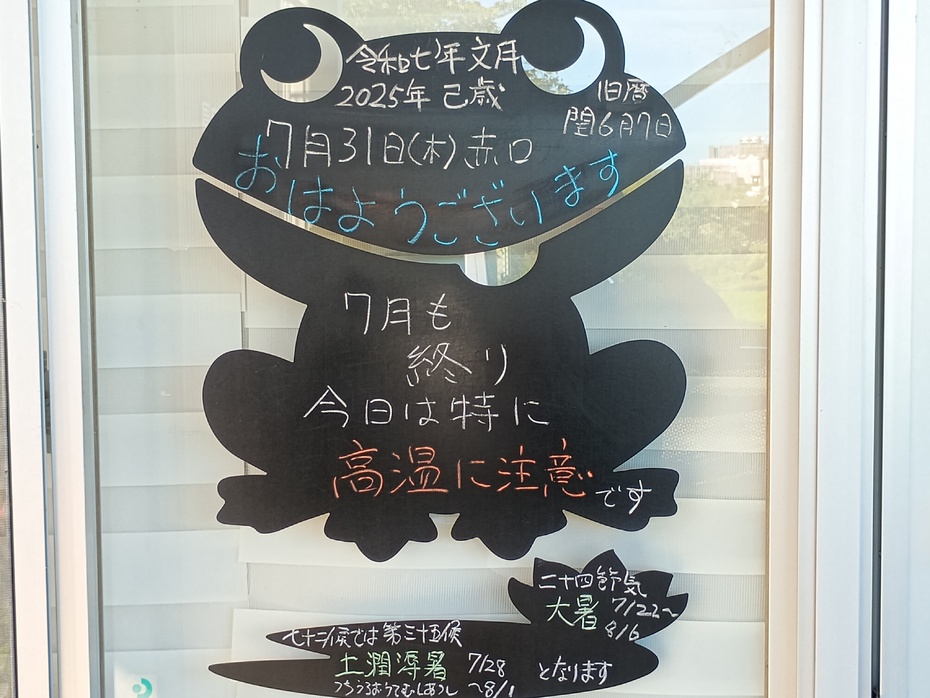 令和七年 文月
2025年 己歳
旧暦
閏6月7日
7月31日(木) 赤口
おはようございます
7月も
終り
今日は特に
高温に注意です
二十四節気
大暑 7/22〜
8/6
七十二候では 第三十五候
土潤溽暑 7/28 となります
つちうるおうてむしあつし 〜8/1